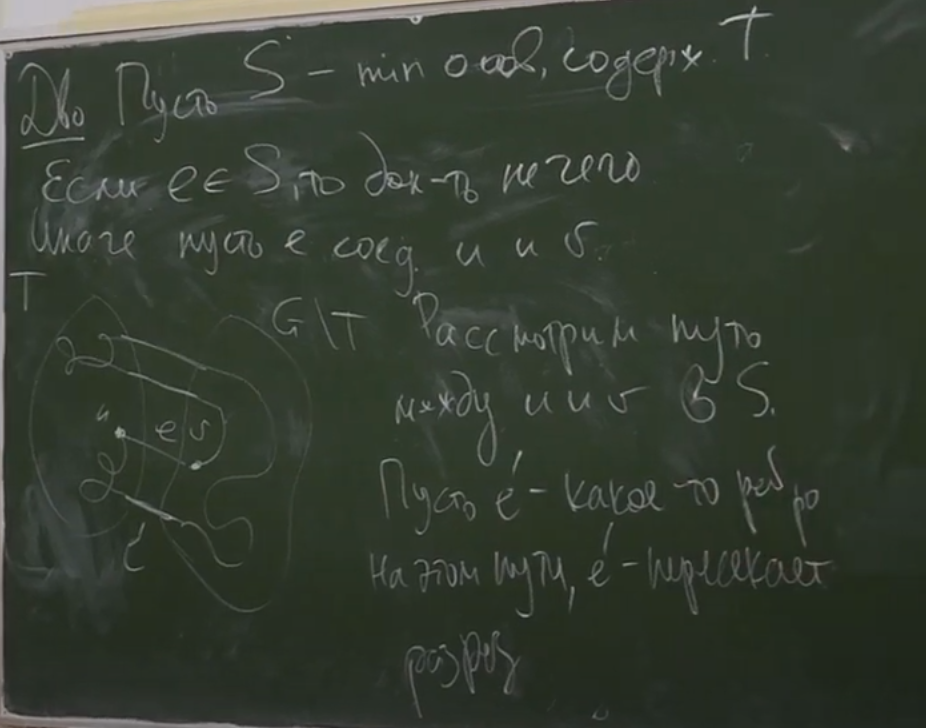 Д-во Пусть S - min остов, содерж. T.
Если e ∈ S, то док-ть нечего
Иначе пусть e соед. u и v.
T
G\T Рассмотрим путь
между u и v в S.
u e v
Пусть e' - какое то ребро
на этом пути, e' - пересекает
e'
разрез